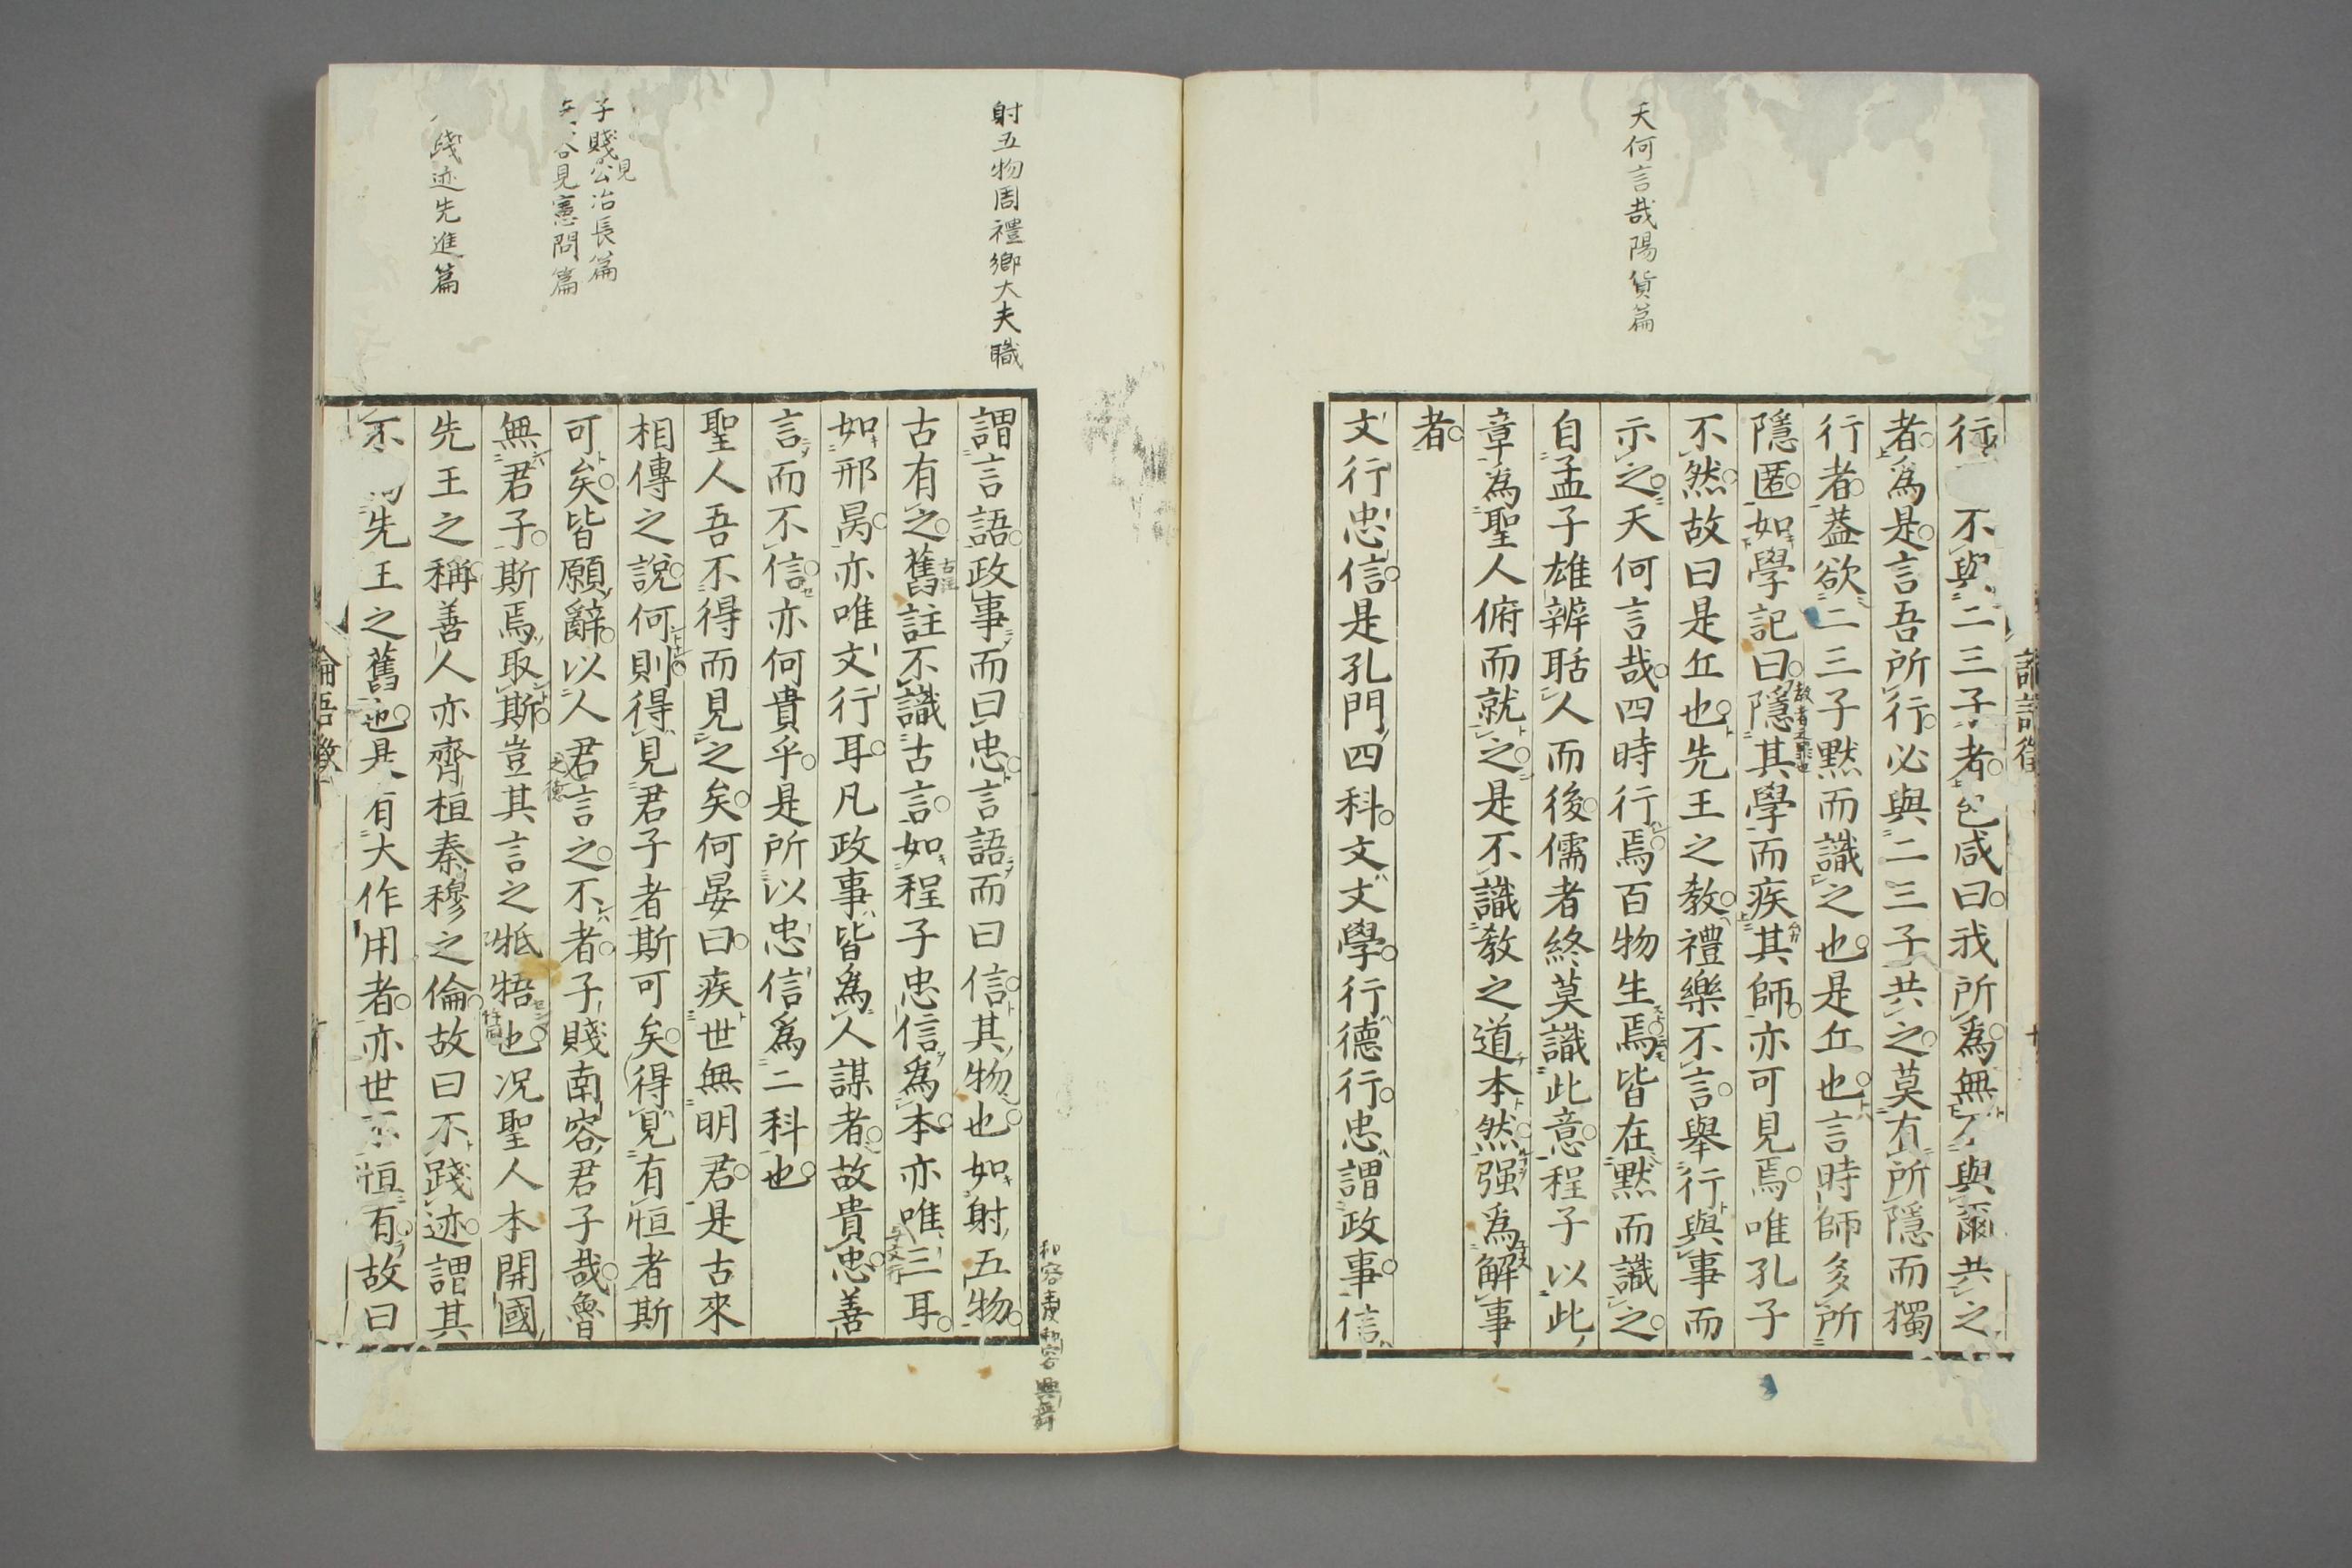 天何言哉陽貨篇
行 不與二三子者包咸曰我所爲無不與爾共之
者爲是言吾所行必與二三子共之莫有所隱而獨
行者葢欲二三子默而識之也是丘也言時師多所
隱匿如學記曰隱其學而疾其師亦可見焉唯孔子
不然故曰是丘也先王之教禮樂不言舉行與事而
示之天何言哉四時行焉百物生焉皆在默而識之
自孟子雄辨聒人而後儒者終莫識此意程子以此
章爲聖人俯而就之是不識教之道本然强爲解事
者
文行忠信是孔門四科文文學行德行忠謂政事信
射五物周禮鄉大夫職
子賤見公冶長篇
容見憲問篇
踐迹先進篇
謂言語政事而曰忠言語而曰信其物也如射五物
古有之舊註不識古言如程子忠信爲本亦唯三耳
如邢昺亦唯文行耳凡政事皆爲人謀者故貴忠善
言而不信亦何貴乎是所以忠信爲二科也
聖人吾不得而見之矣何晏曰疾世無明君是古來
相傳之說何則得見君子者斯可矣得見有恒者斯
可矣皆願辭以人君言之不者子賤南容君子哉魯
無君子斯焉取斯豈其言之牴牾也况聖人本開國
先王之稱善人亦齊桓秦穆之倫故曰不踐迹謂其
不 先王之舊也是有大作用者亦世不恒有故曰
論語徵